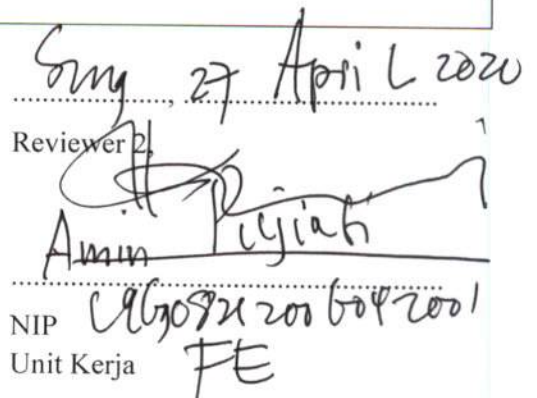 Smg, 27 April 2020
Reviewer 2,
Amin Pujiati
NIP 196908212006042001
Unit Kerja FE